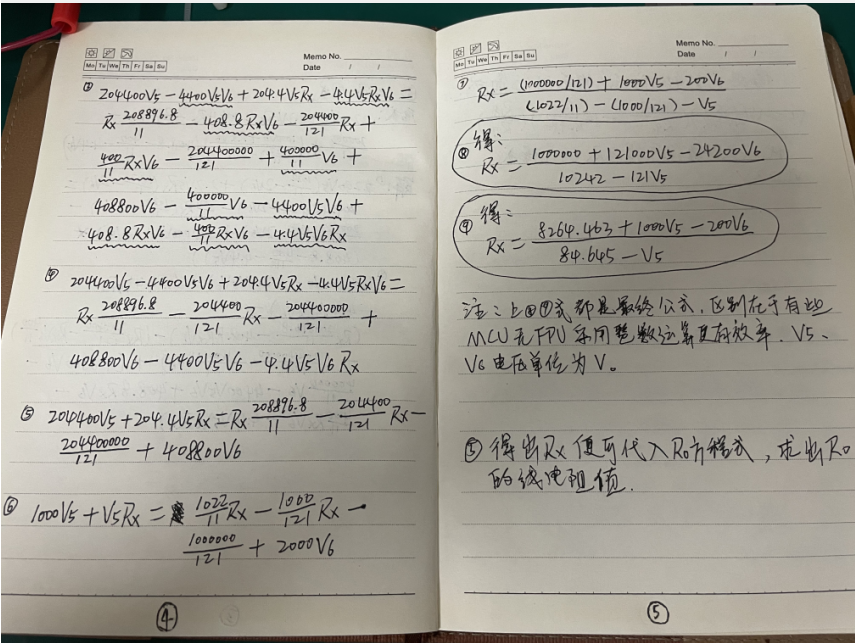 Memo No.
Mo Tu We Th Fr Sa Su
Date / /
③ 204400V5 - 4400V5V6 + 204.4V5Rx - 4.4V5RxV6 =
Rx 208896.8/11 - 408.8RxV6 - 204400/121 Rx +
400/11 RxV6 - 204400000/121 + 400000/11 V6 +
408800V6 - 400000/11 V6 - 4400V5V6 +
408.8RxV6 - 400/11 RxV6 - 4.4V5V6Rx
④ 204400V5 - 4400V5V6 + 204.4V5Rx - 4.4V5RxV6 =
Rx 208896.8/11 - 204400/121 Rx - 204400000/121 +
408800V6 - 4400V5V6 - 4.4V5V6Rx
⑤ 204400V5 + 204.4V5Rx = Rx 208896.8/11 - 204400/121 Rx -
204400000/121 + 408800V6
⑥ 1000V5 + V5Rx = 1022/11 Rx - 1000/121 Rx -
1000000/121 + 2000V6
④
Memo No.
Mo Tu We Th Fr Sa Su
Date / /
⑦ Rx = (1000000/121) + 1000V5 - 200V6
(1022/11) - (1000/121) - V5
⑧ 得：
Rx = 1000000 + 121000V5 - 24200V6
10242 - 121V5
⑨ 得：
Rx = 8264.463 + 1000V5 - 200V6
84.645 - V5
注：上⑧⑨式都是最终公式，区别在于有些
MCU无FPU采用整数运算更有效率．V5、
V6电压单位为V。
⑤ 得出Rx便可代入R0方程式，求出R0
的线电阻值．
⑤